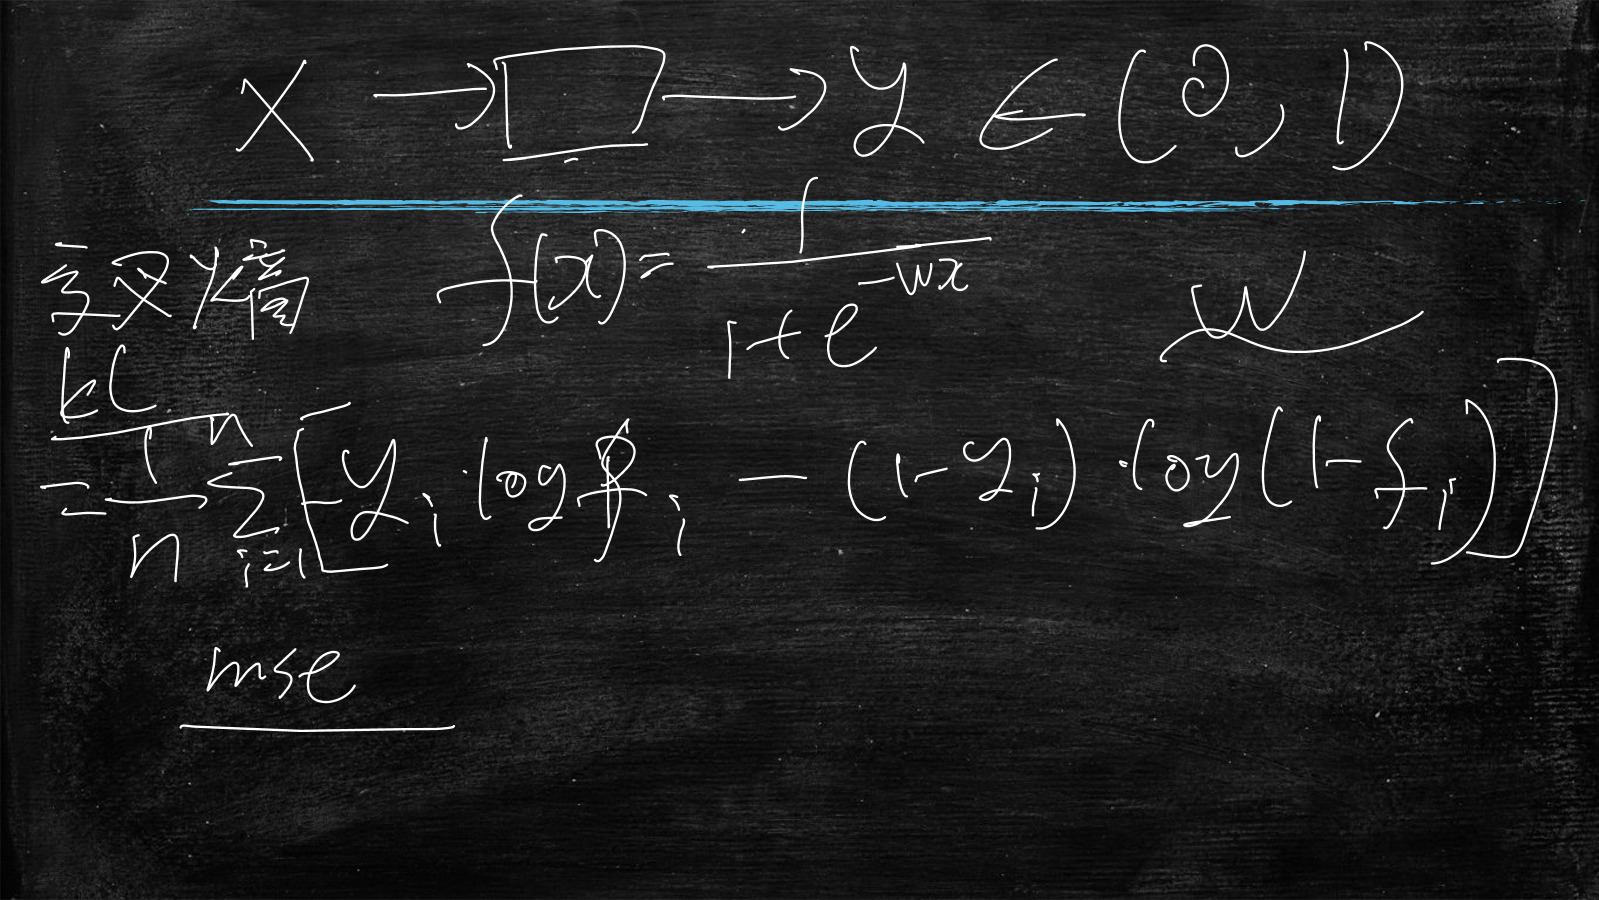 X → □ → y ∈ (0, 1)
f(x) = 1 / (1 + e^{-wx})
w
交叉熵
KL
= 1/n ∑_{i=1}^{n} [ -y_i · log f_i - (1 - y_i) · log(1 - f_i) ]
mse